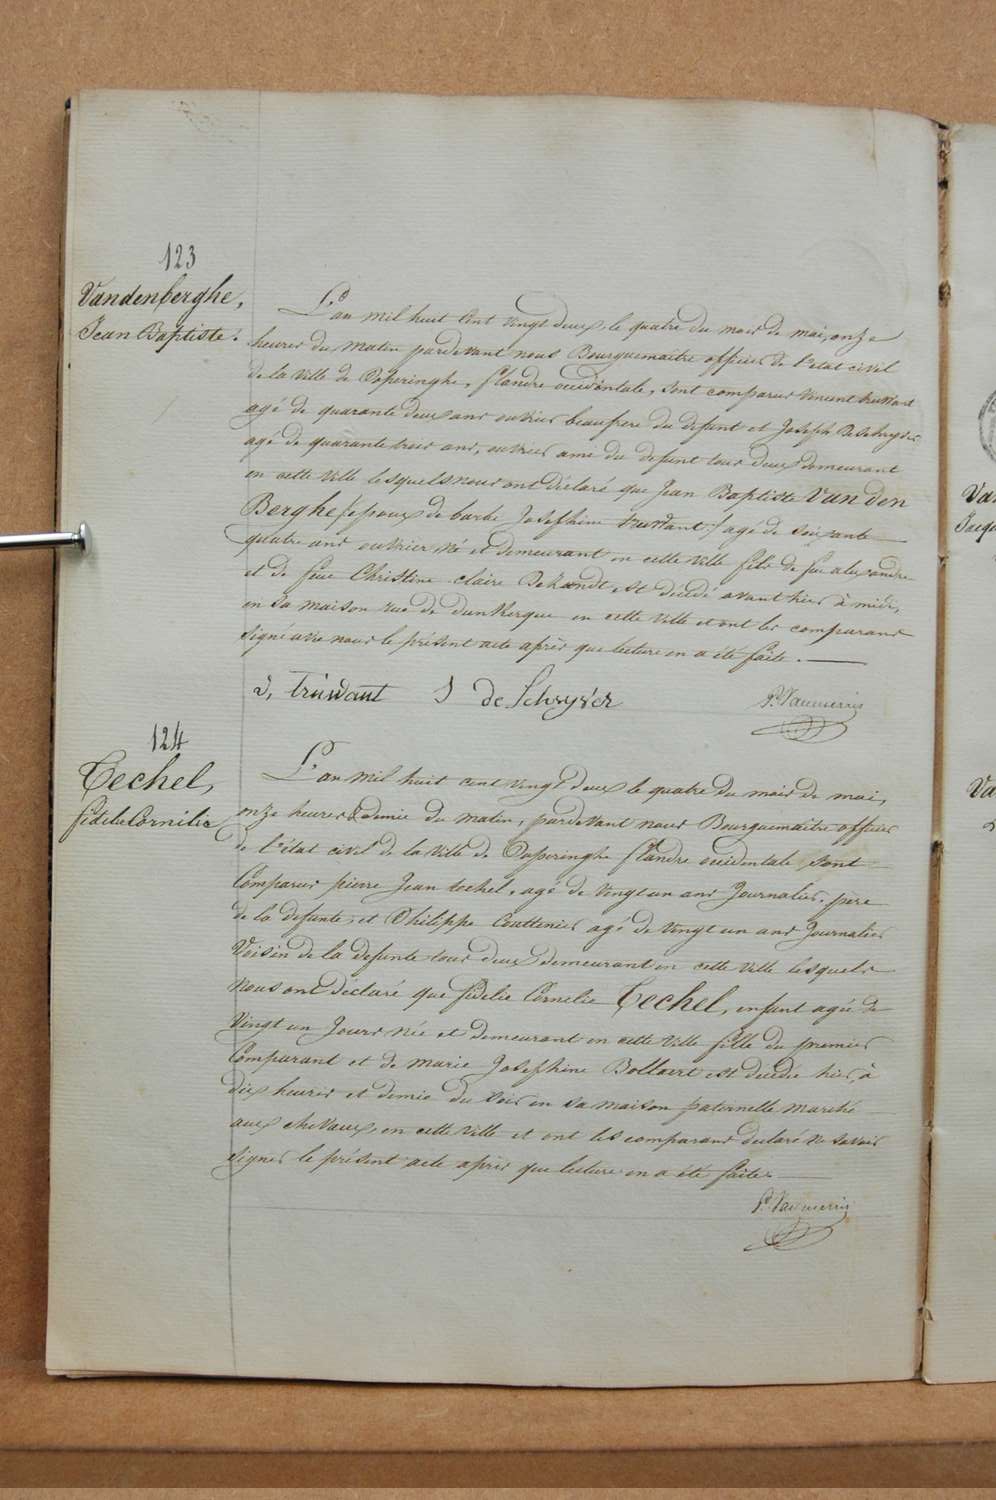 123
Vandenberghe,
Jean Baptiste.
L'an mil huit cent vingt deux, le quatre du mois de mai, onze
heures du matin pardevant nous Bourguemaitre officier de l'etat civil
de la ville de Poperinghe, flandre occidentale, sont comparus vincent truwant
agé de quarante deux ans ouvrier beaufrere du defunt et Joseph De Schryver
agé de quarante trois ans, ouvrier ami du defunt tous deux demeurant
en cette ville lesquels nous ont déclaré que Jean Baptiste Van den
Berghe /époux de barbe Josephine truwant:/ agé de soixante
quatre ans ouvrier né et demeurant en cette ville fils de feu alexandre
et de feue Christine claire est décédé avant hier à midi,
en sa maison rue de dunkerque en cette ville et ont les comparans
signé avec nous le présent acte après que lecture en a été faite.
v, Trüwant J de Schryver P. Vanmerris
124
Techel,
fidelie Cornilie
L'an mil huit cent vingt deux le quatre du mois de mai,
onze heures & demie du matin, pardevant nous Bourguemaitre officier
de l'état civil de la ville de Poperinghe flandre occidentale sont
Comparus pierre Jean techel, agé de vingt un ans Journalier, père
de la defunte, et Philippe Couttenier agé de vingt un ans Journalier
Voisin de la defunte tous deux demeurant en cette ville lesquels
nous ont déclaré que fidelie Cornelie Techel, enfant agée de
vingt un Jours née et demeurant en cette ville fille du premier
Comparant et de marie Josephine Bollaert est decedée hier, à
dix heures et demie du soir en sa maison paternelle marché
aux chevaux, en cette ville et ont les comparans declaré ne savoir
signer le présent acte après que lecture en a été faite.
P. Vanmerris
Van
Jacqu
Va